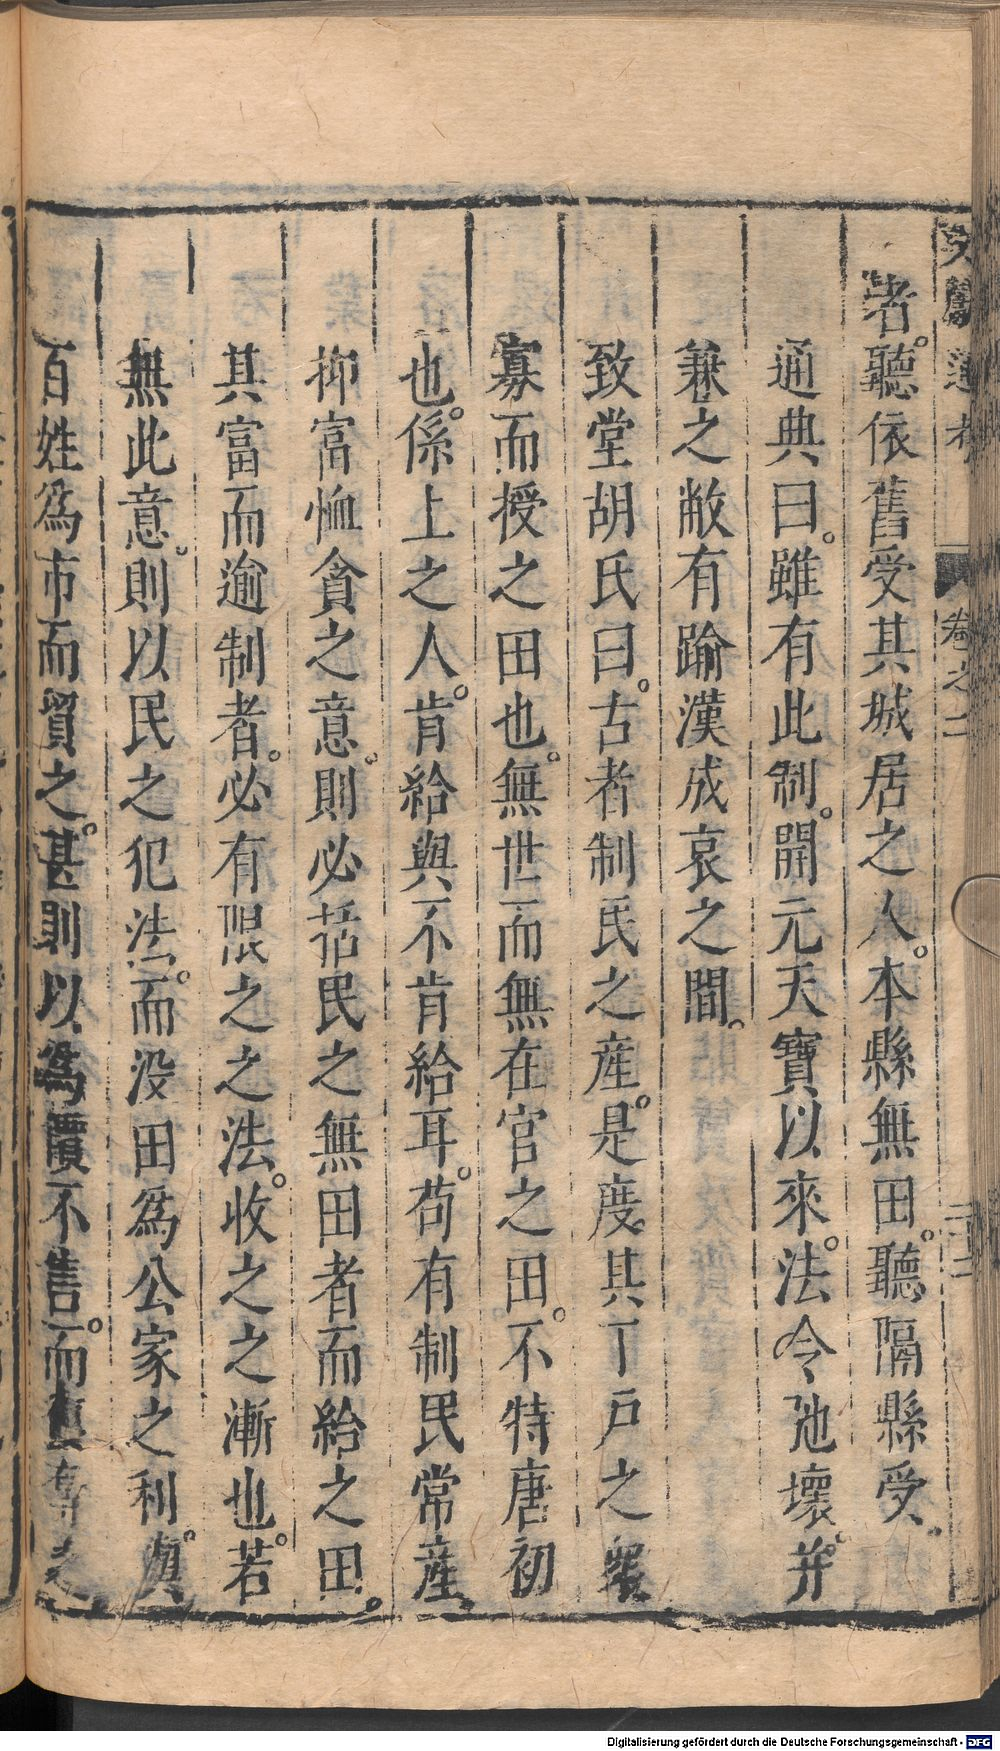 文獻通考 卷之二
者。聽依舊受其城居之人。本縣無田。聽隔縣受。
通典曰。雖有此制。開元天寶以來。法令弛壞。并
兼之敝有踰漢成哀之間。
致堂胡氏曰。古者制民之產。是度其丁戶之衆
寡而授之田也。無世而無在官之田。不特唐初
也。係上之人。肯給與不肯給耳。苟有制民常產。
抑富恤貪之意。則必括民之無田者而給之田。
其富而逾制者。必有限之之法。收之之漸也。若
無此意。則以民之犯法。而没田爲公家之利。與
百姓爲市而貿之。甚則以爲價不售。而奪之
Digitalisierung gefördert durch die Deutsche Forschungsgemeinschaft - DFG